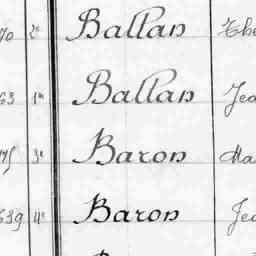 70 2e Ballan
63 1m Ballan Jea
75 3e Baron Ma
639 4e Baron Jea